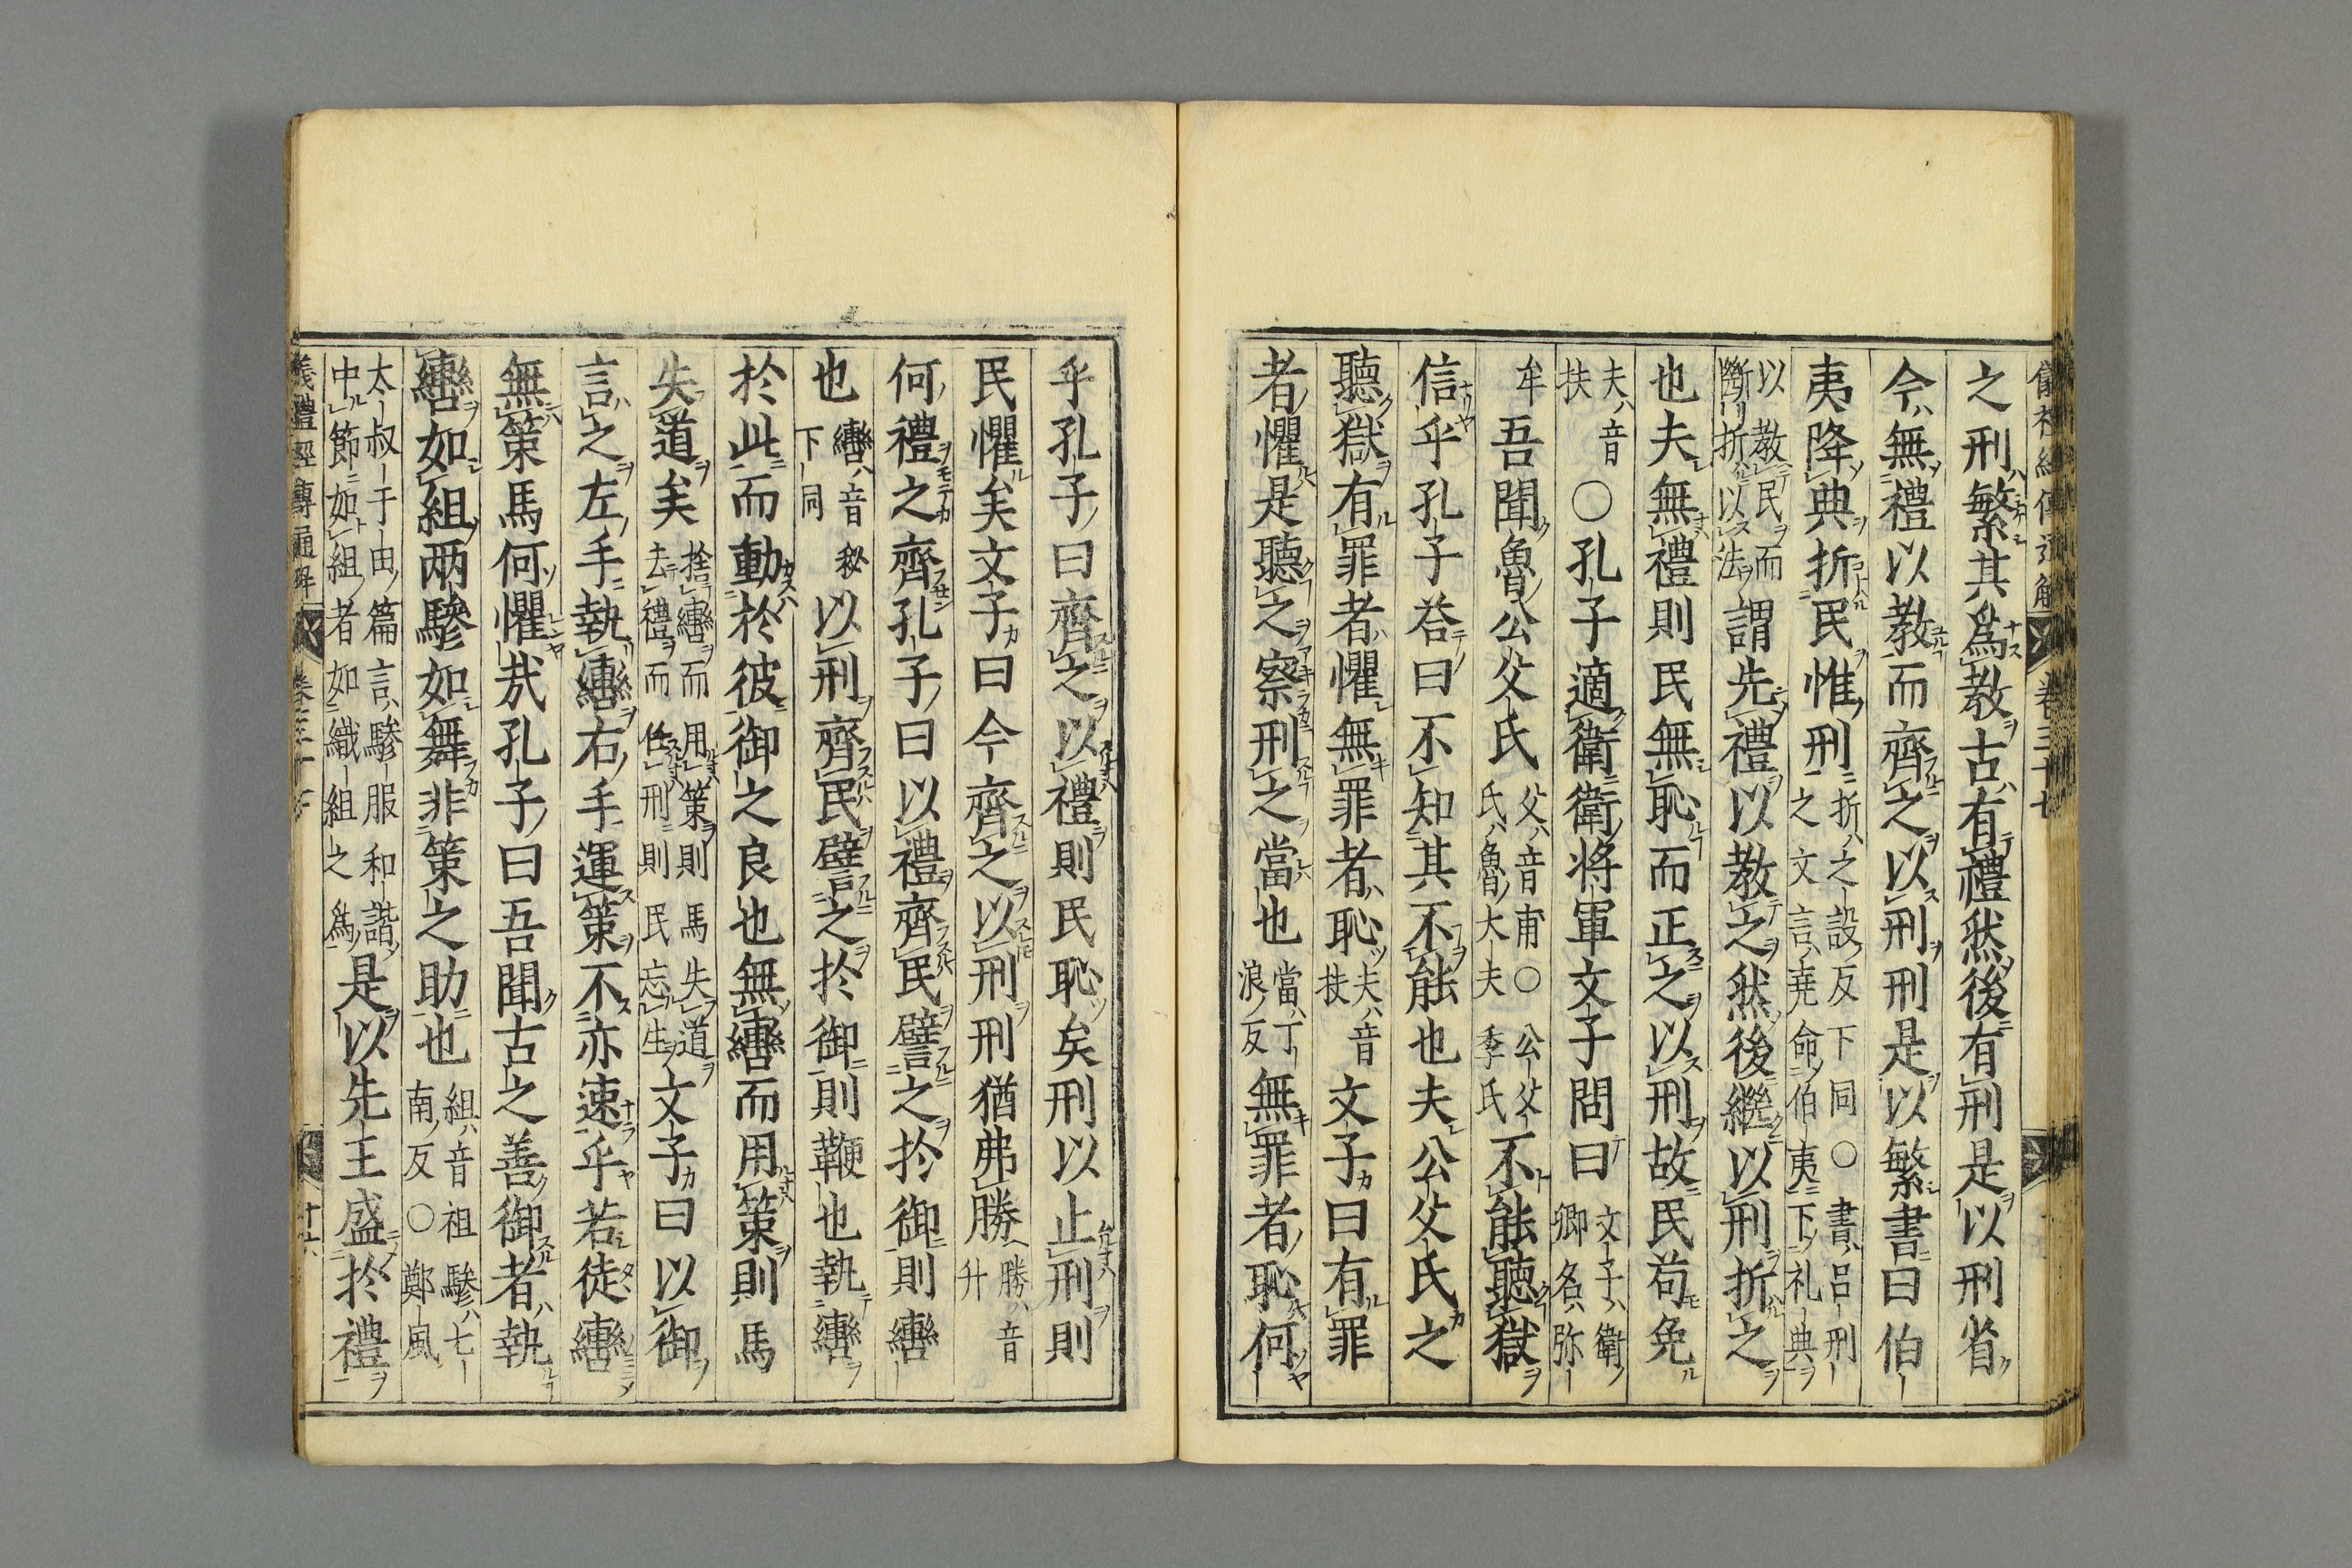 儀禮經傳通解 卷三十七
之刑繁其爲教古有禮然後有刑是以刑省
今無禮以教而齊之以刑刑是以繁書曰伯
夷降典折民惟刑折之設反下同〇書呂刑之文言尭命伯夷下礼典
以教民而斷折以法謂先禮以教之然後繼以刑折之
也夫無禮則民無恥而正之以刑故民苟免
夫音扶〇孔子適衛衛将軍文子問曰文子衛卿名弥
牟吾聞魯公父氏父音甫〇公父氏魯大夫季氏不能聽獄
信乎孔子荅曰不知其不能也夫公父氏之
聽獄有罪者懼無罪者恥夫音扶文子曰有罪
者懼是聽之察刑之當也當丁浪反無罪者恥何
乎孔子曰齊之以禮則民恥矣刑以止刑則
民懼矣文子曰今齊之以刑刑猶弗勝勝音升
何禮之齊孔子曰以禮齊民譬之於御則轡
也轡音秘下同以刑齊民譬之於御則鞭也執轡
於此而動於彼御之良也無轡而用策則馬
失道矣捨轡而用策則馬失道去禮而任刑則民忘生文子曰以御
言之左手執轡右手運策不亦速乎若徒轡
無策馬何懼㦲孔子曰吾聞古之善御者執
轡如組兩驂如舞非策之助也組音祖驂七南反〇鄭風
太叔于由篇言驂服和諧中節如組者如織組之爲是以先王盛於禮
儀禮經傳通解 卷三十七 十六